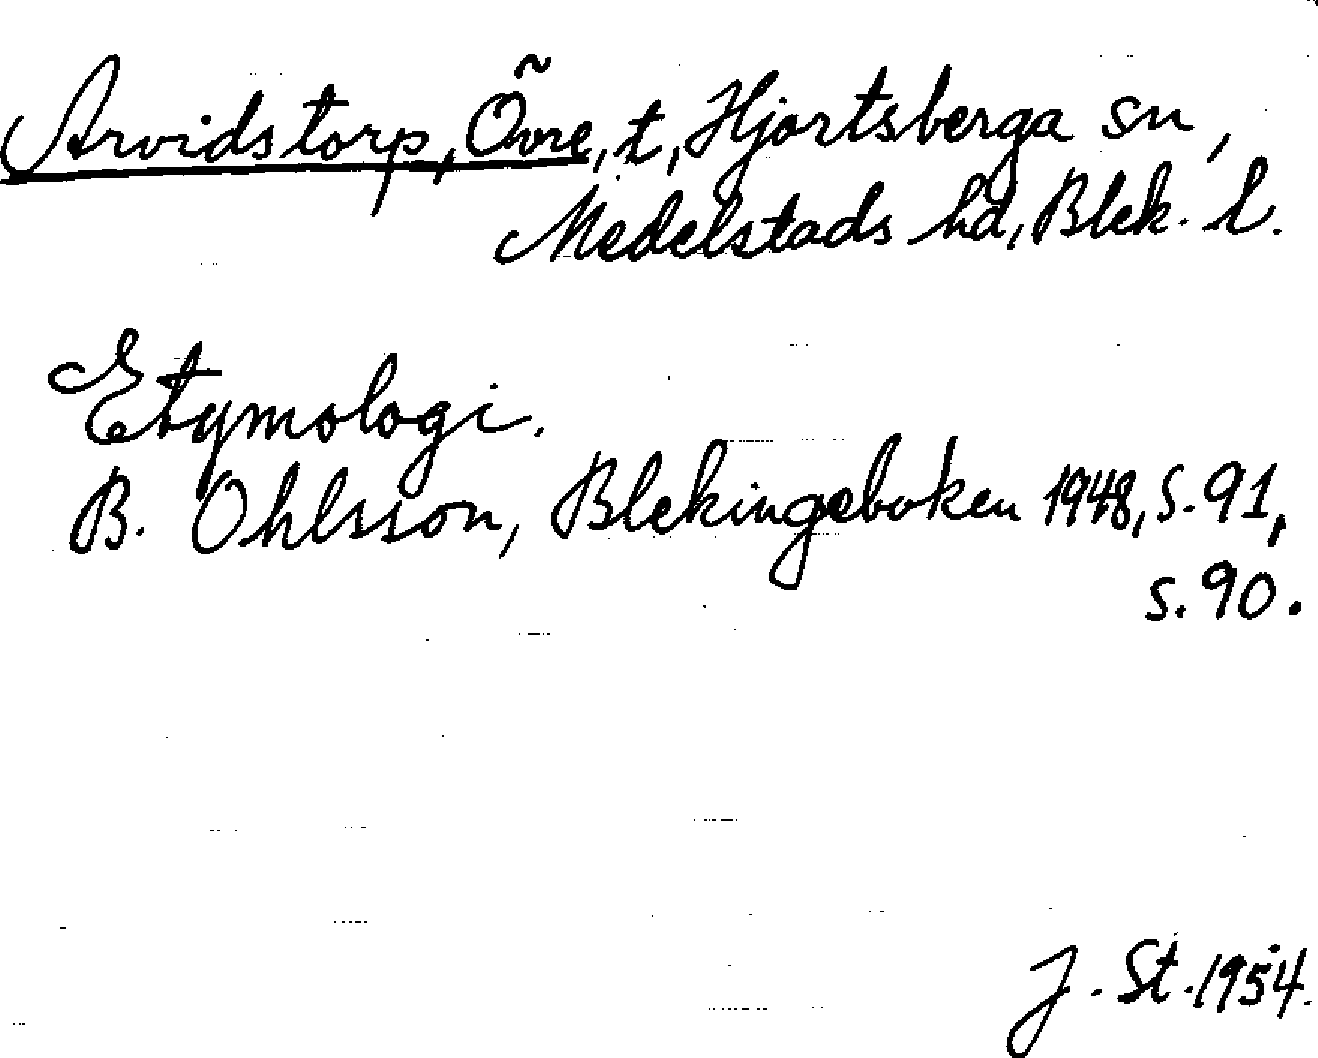 Arvidstorp, Övre, t, Hjortsberga sn,
Medelstads hd, Blek. l.
Etymologi.
B. Ohlsson, Blekingeboken 1948, s. 91,
s. 90.
J. St. 1954.